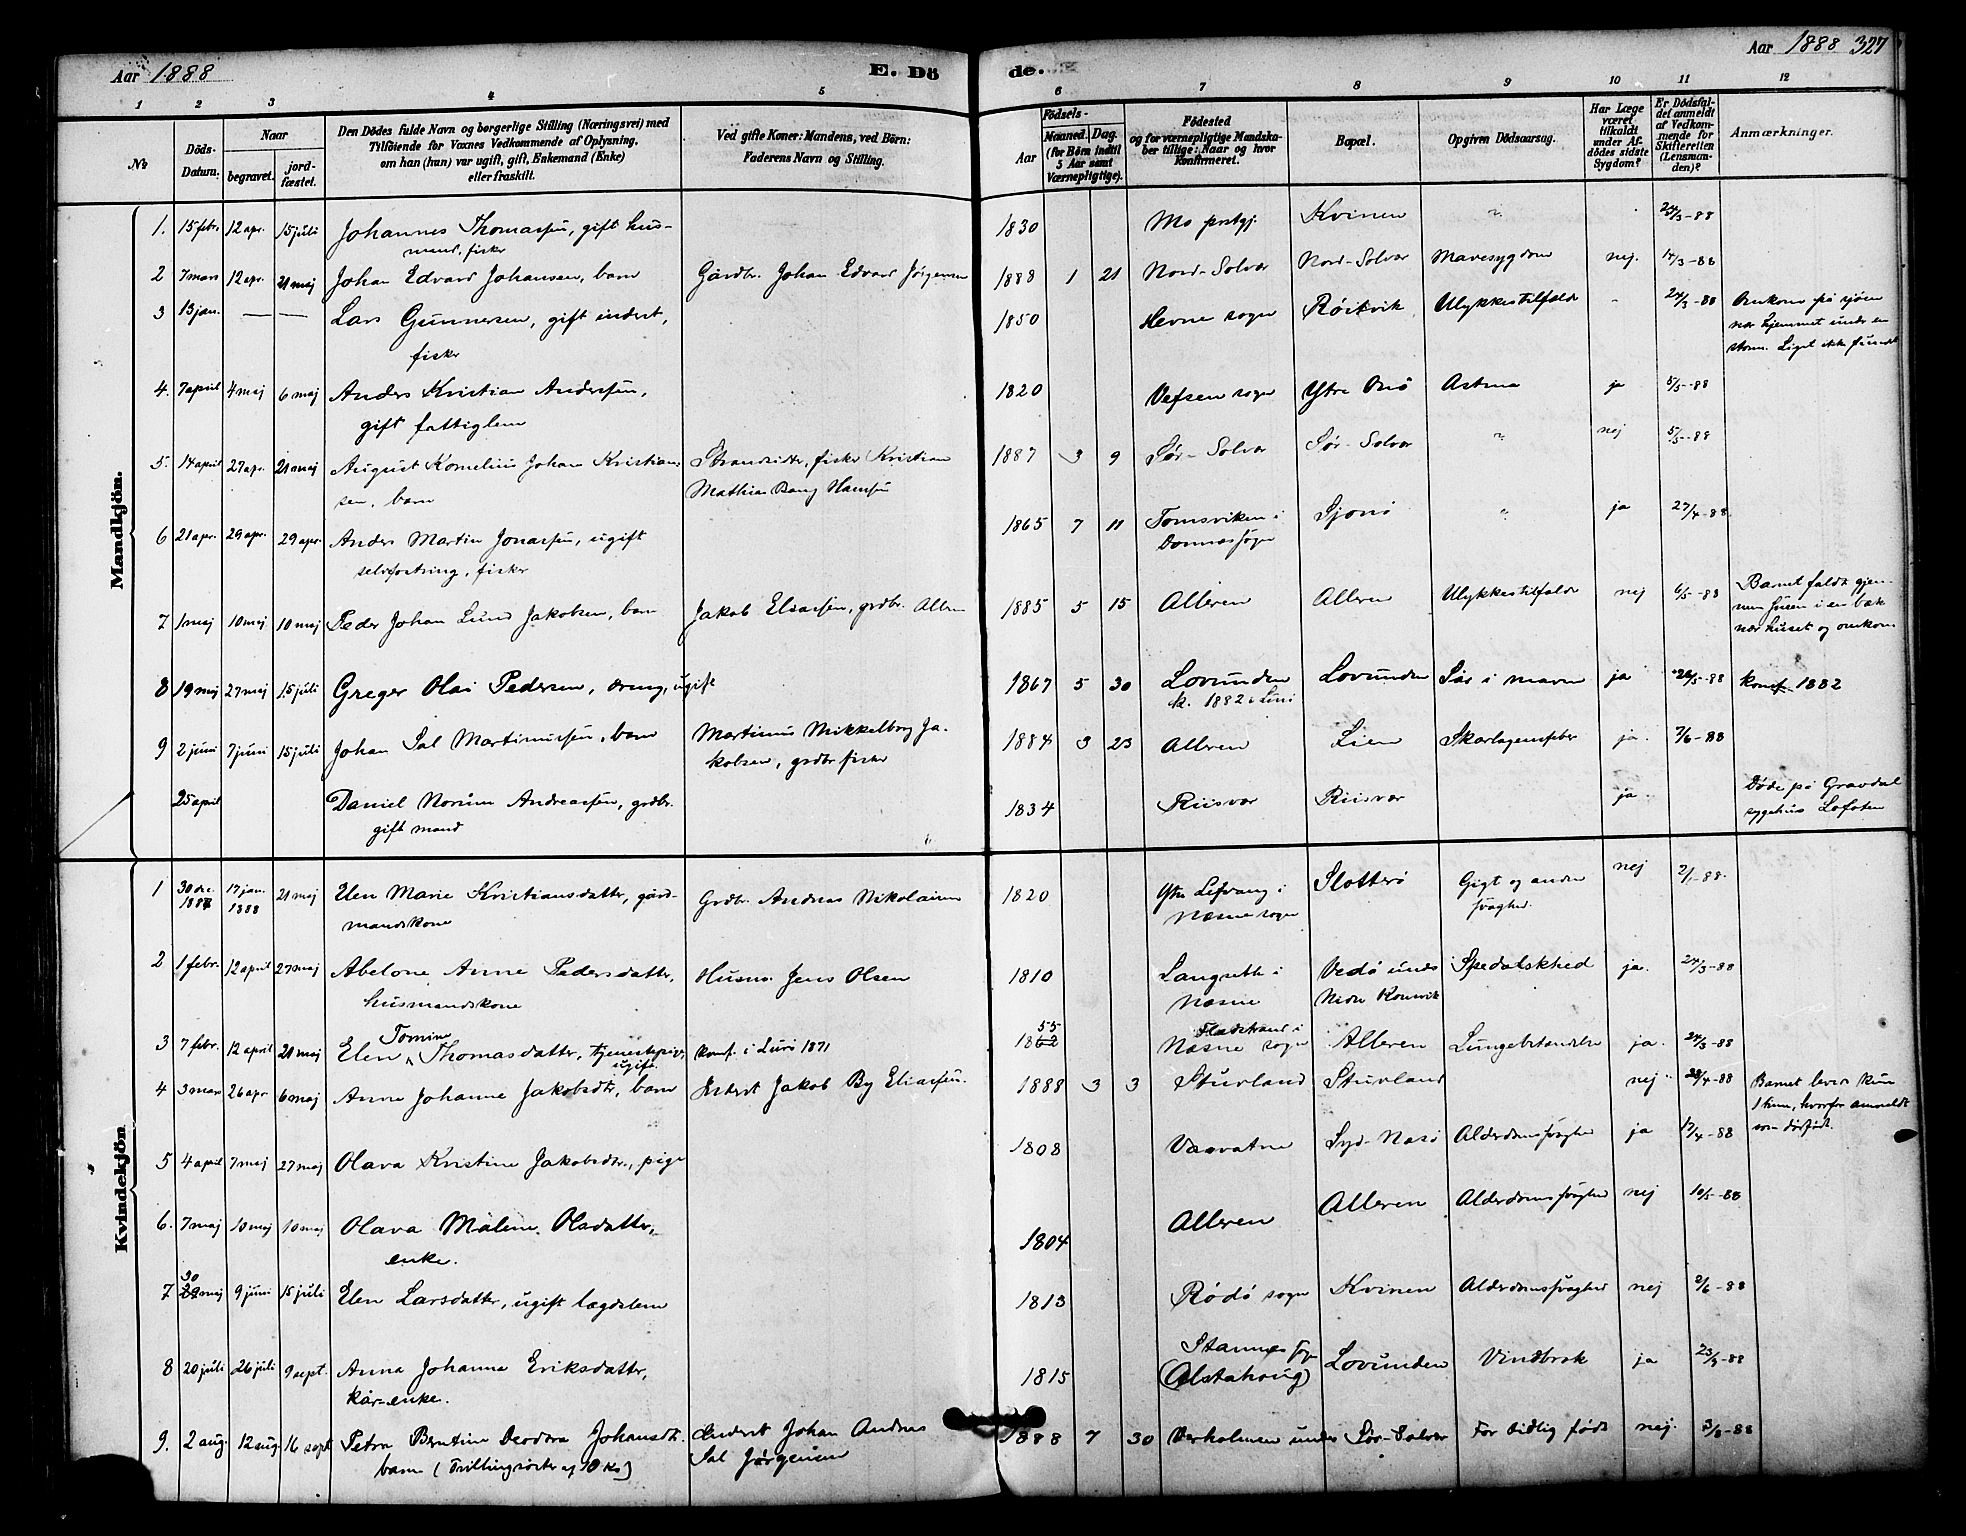 Aar 1888
E. Dö
de.
Aar 1888 327
1 2 3 4 5 6 7 8 9 10 11 12
№
Döds-
Datum.
Naar
begravet.
jord-
fæstet.
Den Dödes fulde Navn og borgerlige Stilling (Næringsvei) med
Tilföiende for Voxnes Vedkommende af Oplysning,
om han (hun) var ugift, gift, Enkemand (Enke)
eller fraskilt.
Ved gifte Koner: Mandens, ved Börn:
Faderens Navn og Stilling.
Födsels-
Aar
Maaned. Dag.
(for Börn indtil
5 Aar samt
Værnepligtige).
Födested
og for værnepligtige Mandska-
ber tillige: Naar og hvor
Konfirmeret.
Bopæl.
Opgiven Dödsaarsag.
Har Læge
været
tilkaldt
under Af-
dödes sidste
Sygdom?
Er Dödsfal-
det anmeldt
af Vedkom-
mende for
Skifteretten
(Lensman-
den)?
Anmærkninger.
Mandkjön.
1. 15 febr. 12 apr. 15 juli Johannes Thomassen, gift hus- 1830 Mo prstgj. Kvinen " 24/3-88
mand, fisker
2 7 mars 12 apr. 21 maj Johan Edvard Johansen, barn Gårdbr. Johan Edvard Jørgensen 1888 1 21 Nord-Solvær Nord-Solvær Mavesygdom nej. 14/3-88
3 13 jan. — — Lars Gunnersen, gift inderst, 1850 Hevne sogn Røitvik Ulykkestilfælde - 24/3-88 Omkom på sjøen
fisker
nær hjemmet under en
storm. Liget ikke fundet
4. 7 april 4 maj 6 maj Anders Kristian Andersen, 1820 Vefsen sogn Ytre Onø Astma ja 5/5-88
gift fattiglem
5. 14 april 27 apr. 21 maj August Kornelius Johan Kristian- Strandsidder, fisker Kristian 1887 3 9 Sør-Solvær Sør-Solvær " nej 5/5-88
sen, barn Mathias Bang Hansen
6 21 apr. 29 apr. 29 apr. Anders Martin Jonassen, ugift 1865 7 11 Tomsviken i Sjonø " ja 27/4-88
selvfostring, fisker Dønnæs sogn
7 1 maj 10 maj 10 maj Peder Johan Lund Jakobsen, barn Jakob Eliassen, grdbr. Alleren 1885 5 15 Alleren Alleren Ulykkestilfælde nej 6/5-88 Barnet faldt gjen-
nem sneen i en bæk
nær huset og omkom
8 19 maj 27 maj 15 juli Greger Olai Pedersen, dreng, ugift 1867 5 30 Lovunden Lovunden Sår i maven ja 26/5-88 konf. 1882
k. 1882 i Lurö
9 2 juni 7 juni 15 juli Johan Sal Martinussen, barn Martinus Mikkelborg Ja- 1884 3 23 Alleren Lien Skarlagensfeber ja. 7/6-88
kobsen, grdbr fisker
25 april Daniel Norum Andreassen, grdbr. 1834 Riisvær Riisvær ja. Døde på Gravdal
gift mand sygehus Lofoten
Kvindekjön
1 30 dec. 1887 17 jan. 1888 21 maj Elen Marie Kristiansdatter, gård- Grdbr. Andreas Nikolaisen 1820 Ytre Lefvang i Slotterø Gigt og anden nej 2/1-88.
mandskone Næsne sogn svaghed.
2 1 febr. 12 april 27 maj Abelone Anne Pedersdatter, Husm. Jens Olsen 1810 Langseth i Vedø under Spedalskhed ja. 24/3-88
husmandskone Næsne Nedre Kornvik
3 7 febr. 12 april 21 maj Elen Tomine Thomasdatter, tjenestepige, konf. i Lurö 1871 1862 55 Fladstrand i Næsne sogn Alleren Lungebetændelse ja. 24/3-88
ugift.
4 3 mars 26 apr 6 maj Anne Johanne Jakobsdtr, barn Inderst Jakob By Eliassen. 1888 3 3 Stuvland Stuvland nej 28/4-88 Barnet levede kun
1 time, hvorfor anmeldt
som dødfødt.
5 4 april 7 maj 27 maj Olava Kristine Jakobsdtr., pige 1808 Vasvatne Syd-Næsø Alderdomssvaghed ja 17/4-88
6. 7 maj 10 maj 10 maj Olava Malene Oladatter, 1804 Alleren Alleren Alderdomssvaghed nej 10/5-88
enke.
7 30 maj 9 juni 15 juli Elen Larsdatter, ugift lægdslem 1813 Rødø sogn Kvinen Alderdomssvaghed nej 2/6-88
8 20 juli 26 juli 9 sept. Anna Johanna Eriksdatter, 1815 Stamnes sogn (Alstahoug) Lovunden Vindbrok ja 23/9-88
kår-enke.
9. 2 aug. 12 aug 16 sept Petra Berntine Deodora Johansdt. Inderst Johan Andreas 1888 7 30 Værholmen under Sør-Solvær For tidlig født nej. 3/8-88
barn (Trillingsøster af 10 Ks) Sal Jørgensen